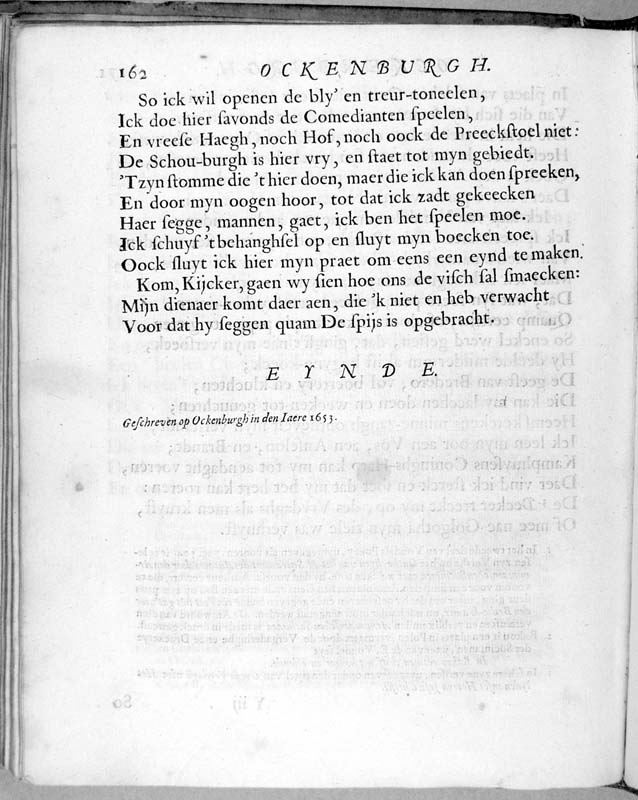 162 OCKENBURGH.
So ick wil openen de bly' en treur-toneelen,
Ick doe hier ſavonds de Comedianten ſpeelen,
En vreeſe Haegh, noch Hof, noch oock de Preeckſtoel niet:
De Schou-burgh is hier vry, en ſtaet tot myn gebiedt.
'Tzyn ſtomme die 't hier doen, maer die ick kan doen ſpreeken,
En door myn oogen hoor, tot dat ick zadt gekeecken
Haer ſegge, mannen, gaet, ick ben het ſpeelen moe.
Ick ſchuyf 't behanghſel op en ſluyt myn boecken toe.
Oock ſluyt ick hier myn praet om eens een eynd te maken.
Kom, Kijcker, gaen wy ſien hoe ons de viſch ſal ſmaecken:
Mijn dienaer komt daer aen, die 'k niet en heb verwacht
Voor dat hy ſeggen quam De ſpijs is opgebracht.
EYNDE.
Geſchreven op Ockenburgh in den Iaere 1653.